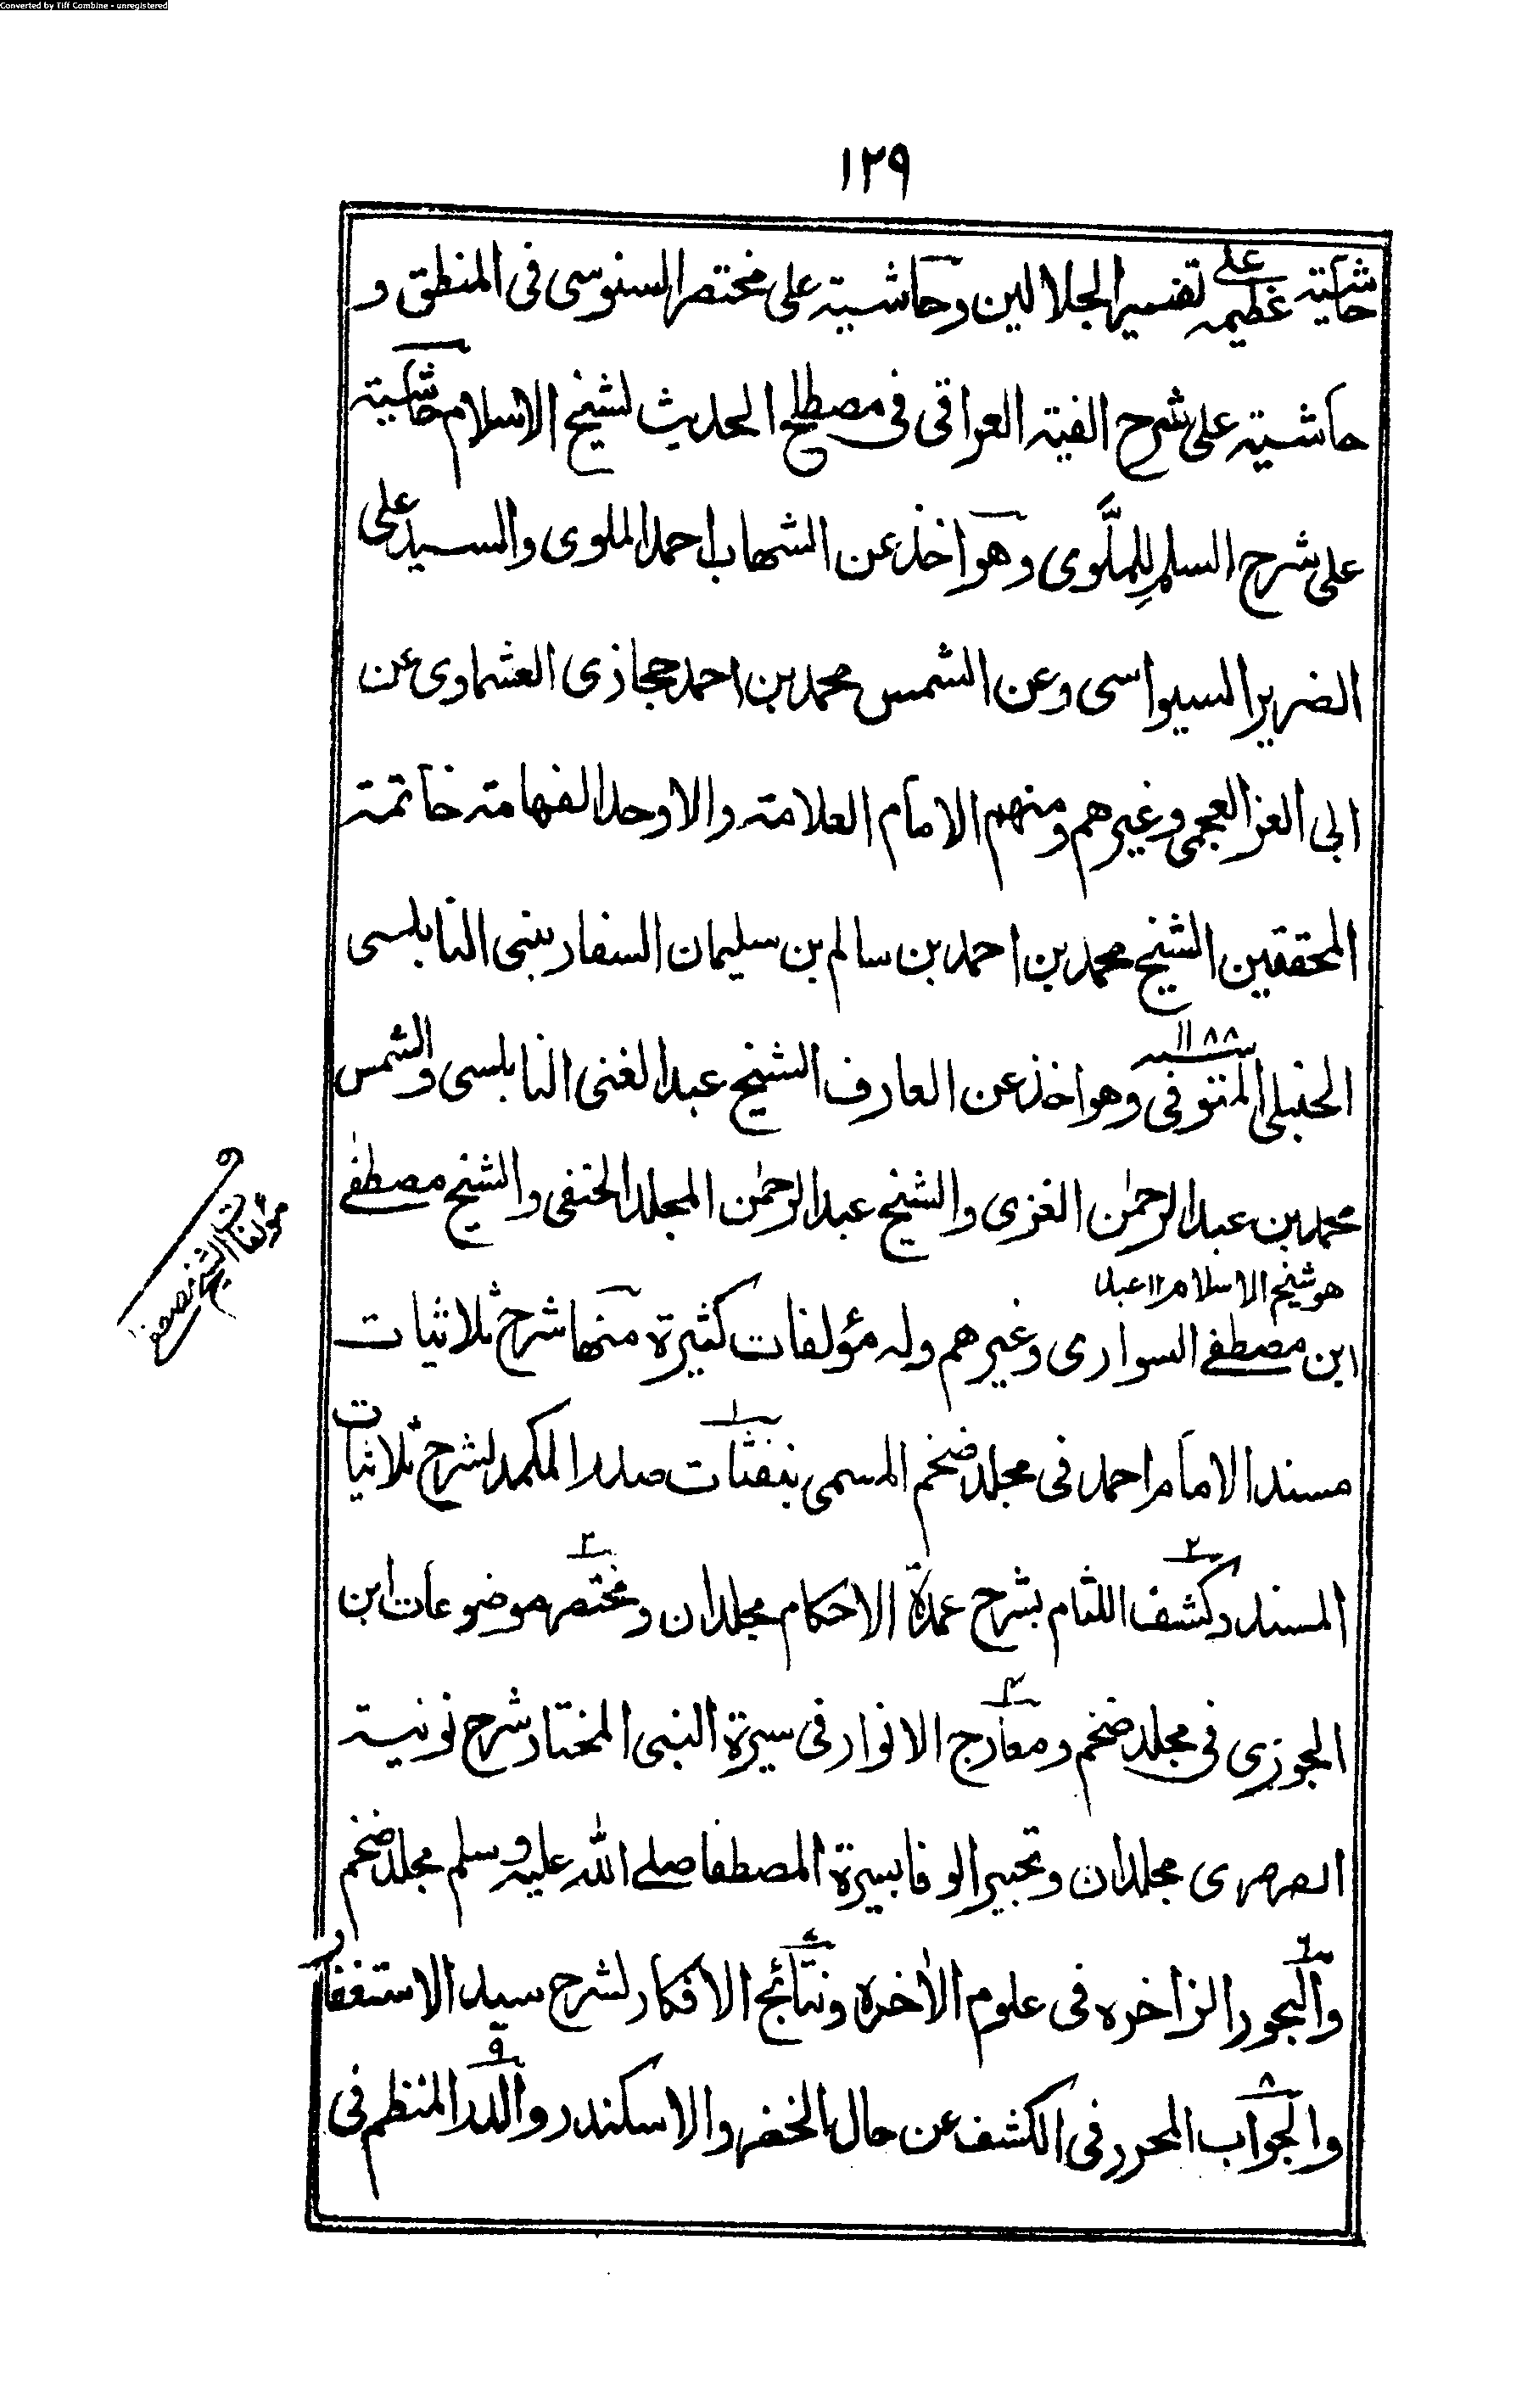 Converted by Tiff Combine - unregistered
١٢٩
حاشية عظيمه على تفسير الجلالين وحاشية على مختصر السنوسى فى المنطق و
حاشية على شرح الفية العراقى فى مصطلح الحديث لشيخ الاسلام حاشية
على شرح السلم لِلملَّوى وهو اخذ عن الشهاب احمد الملوى والسيد على
الضرير السيواسى وعن الشمس محمد بن احمد حجازى العشماوى عن
ابى العز العجمى وغيرهم ومنهم الامام العلامة والاوحد الفهامة خاتمة
المحققين الشيخ محمد بن احمد بن سالم بن سليمان السفارينى النابلسى
الحنبلى المتوفى سنة ١١٨٨ وهو اخذ عن العارف الشيخ عبد الغنى النابلسى والشمس
محمد بن عبد الرحمٰن الغزى والشيخ عبد الرحمٰن المجلد الحنفى والشيخ مصطفى
هو شيخ الاسلام ١٢ عبد
ابن مصطفے السوارى وغيرهم وله مؤلفات كثيرة منها شرح ثلاثيات
مؤلفات الشيخ
مسند الامام احمد فى مجلد ضخم المسمى ١ بنفثات صدر المكمد لشرح ثلاثيات
المسند ٢ وكشف اللثام بشرح عمدة الاحكام مجلدان ٣ ومختصر موضوعات ابن
الجوزى فى مجلد ضخم ٤ ومعارج الانوار فى سيرة النبى المختار شرح نونية
الصرصرى مجلدان وتحبير الوفا بسيرة المصطفا صلے الله عليه وسلم مجلد ضخم
٦ والبحور الزاخره فى علوم الاٰخره ونتائج الافكار لشرح سيد الاستغفار
٨ والجواب المحرر فى الكشف عن حال الخضر والاسكندر ٩ والدر المنظم فى